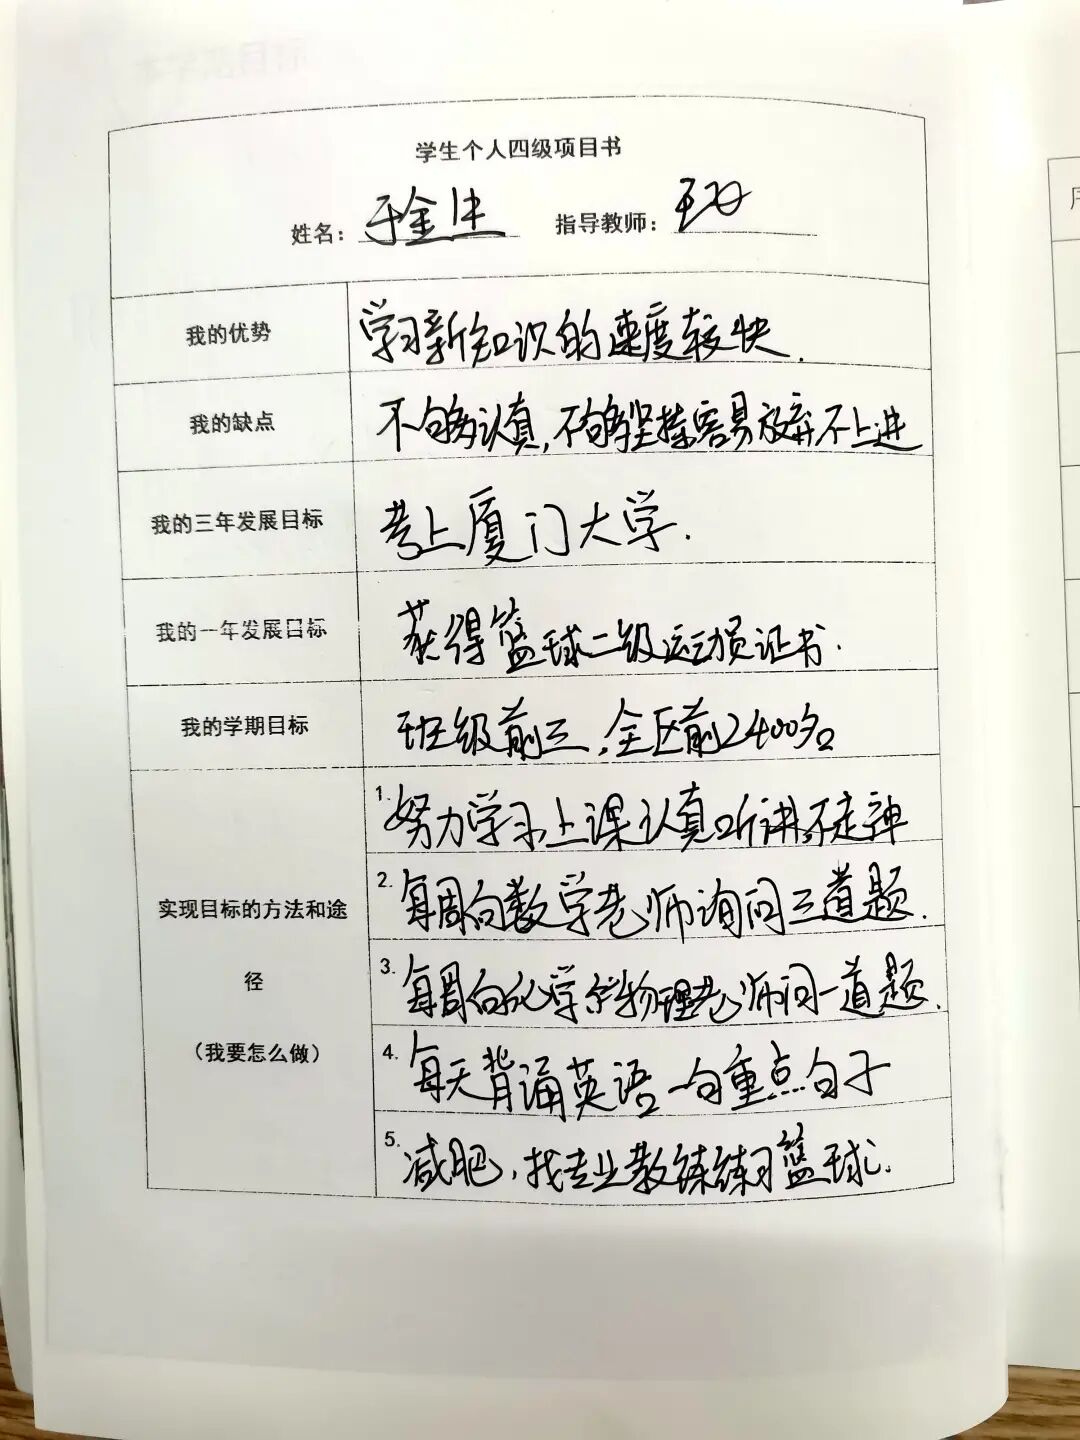 学生个人四级项目书
姓名：于金生 指导教师：
我的优势 学习新知识的速度较快.
我的缺点 不够认真,不够坚持容易放弃不上进
我的三年发展目标 考上厦门大学.
我的一年发展目标 获得篮球二级运动员证书.
我的学期目标 班级前三,全区前2400名
实现目标的方法和途
径
（我要怎么做）
1. 努力学习,上课认真听讲不走神
2. 每周向数学老师询问三道题.
3. 每周向化学物理老师问一道题.
4. 每天背诵英语一句重点句子
5. 减肥,找专业教练练习篮球.